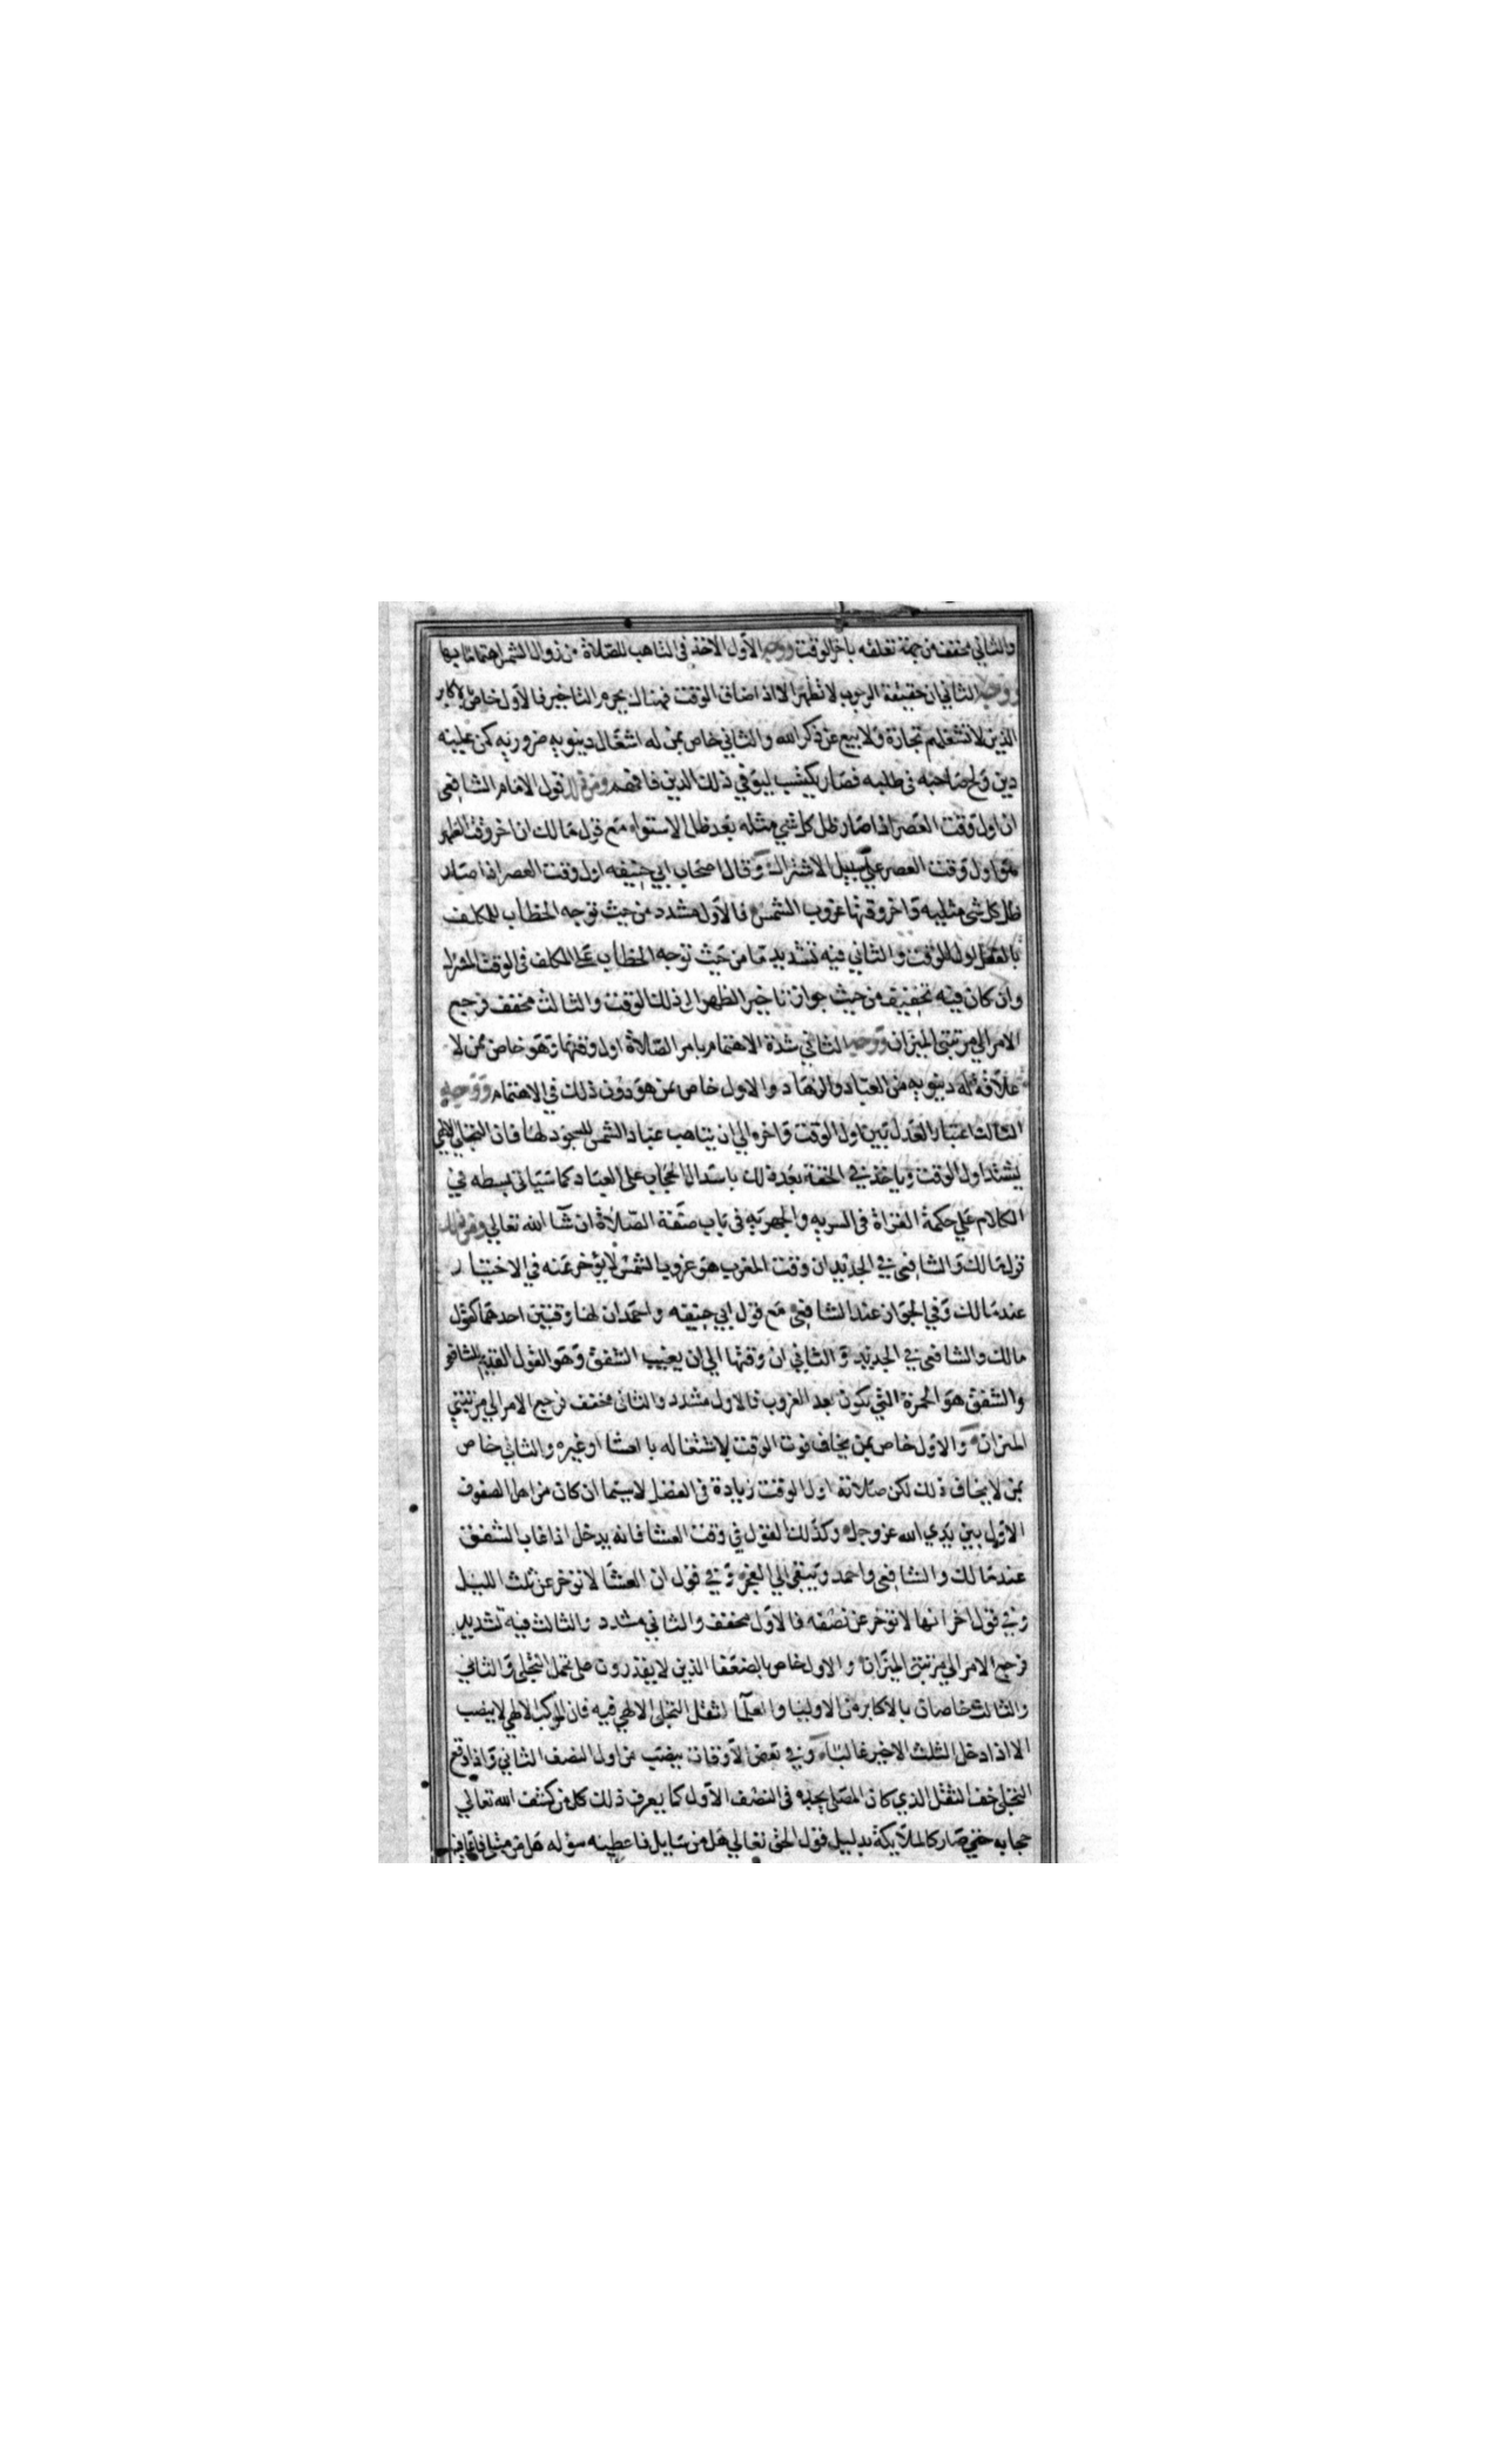 والثاني مخفف من جهة تعلقه باخر الوقت ووجه الاول الاخذ في التاهب للصلاة من زوال الشمس اهتماما بها
ووجه الثاني ان حقيقة الوجوب لا تظهر الا اذا ضاق الوقت فهناك يحرم التاخير فالاول خاص بالاكابر
الذين لا تشغلهم تجارة ولا بيع عن ذكر الله والثاني خاص بمن له اشغال دينويه ضروريه كمن عليه
دين ولح صاحبه في طلبه فصار يكتسب ليوفي ذلك الدين فافهم ومن ذلك قول الامام الشافعي
ان اول وقت العصر اذا صار ظل كل شي مثله بعد ظل الاستواء مع قول مالك ان اخر وقت الظهر
هو اول وقت العصر علي سبيل الاشتراك وقال اصحاب ابي حنيفه اول وقت العصر اذا صار
ظل كل شي مثليه واخر وقتها غروب الشمس فالاول مشدد من حيث توجه الخطاب للمكلف
بالفعل اول الوقت والثاني فيه تشديد ما من حيث توجه الخطاب علي المكلف في الوقت المشترك
وان كان فيه تخفيف من حيث جواز تاخير الظهر الي ذلك الوقت والثالث مخفف فرجع
الامر الي مرتبتي الميزان ووجه الثاني شدة الاهتمام بامر الصلاة اول وقتها وهو خاص بمن لا
علاقة له دينويه من العباد والزهاد والاول خاص بمن هو دون ذلك في الاهتمام ووجه
الثالث اعتبار العدل بين اول الوقت واخره الي ان يتاهب عباد الشمس للسجود لها فان التجلي الالهي
يشتد اول الوقت وياخذ في الخفة بعد ذلك باسدال الحجاب على العباد كما سياتي بسطه في
الكلام علي حكمة القراة في السريه والجهريه في باب صفة الصلاة ان شآ الله تعالي ومن ذلك
قول مالك والشافعي في الجديد ان وقت المغرب هو غروب الشمس لا يؤخر عنه في الاختيار
عند مالك وفي الجواز عند الشافعي مع قول ابي حنيفه واحمد ان لها وقتين احدهما كقول
مالك والشافعي في الجديد والثاني ان وقتها الي ان يغيب الشفق وهو القول القديم للشافعي
والشفق هو الحمرة التي تكون بعد الغروب فالاول مشدد والثاني مخفف فرجع الامر الي مرتبتي
الميزان والاول خاص بمن يخاف فوت الوقت لاشتغاله بالعشا او غيره والثاني خاص
بمن لا يخاف ذلك لكن صلاته اول الوقت زيادة في الفضل لا سيما ان كان من اهل الصفوف
الاول بين يدي الله عز وجل وكذلك القول في وقت العشا فانه يدخل اذا غاب الشفق
عند مالك والشافعي واحمد ويبقى الي الفجر وفي قول ان العشا لا تؤخر عن ثلث الليل
وفي قول اخر انها لا تؤخر عن نصفه فالاول مخفف والثاني مشدد والثالث فيه تشديد
فرجع الامر الي مرتبتي الميزان والاول خاص بالضعفا الذين لا يقدرون على تحمل التجلي والثاني
والثالث خاصان بالاكابر من الاوليا والعلما لثقل التجلي الالهي فيه فان الموكب الالهي لا ينصب
الا اذا دخل الثلث الاخير غالبا وفي بعض الاوقات ينصب من اول النصف الثاني واذا وقع
التجلي خف الثقل الذي كان المصلي يجده في النصف الاول كما يعرف ذلك كل من كشف الله تعالي
حجابه حتي صار كالملايكة بدليل قول الحق تعالي هل من سايل فاعطيه سؤله هل من مبتلا فاعافيه